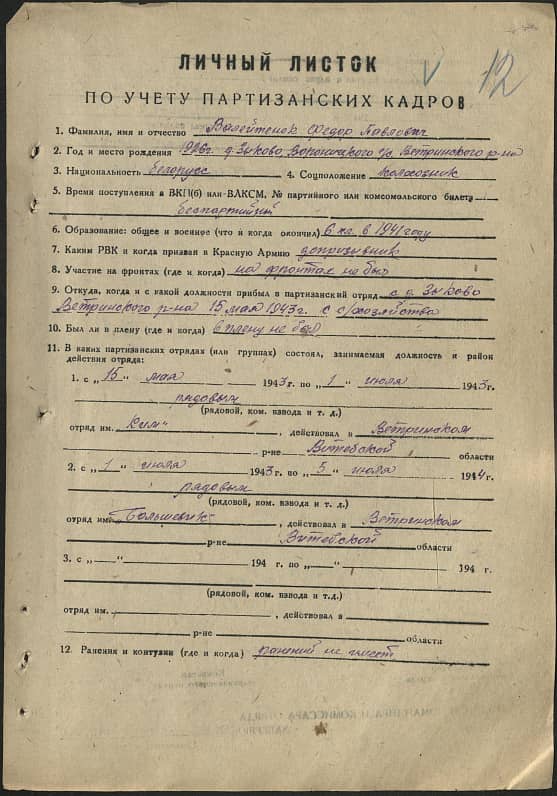 12
ЛИЧНЫЙ ЛИСТОК
ПО УЧЕТУ ПАРТИЗАНСКИХ КАДРОВ
1. Фамилия, имя и отчество Валейтенок Федор Павлович
2. Год и место рождения 1926г. д. Зыково Вороничского с/с Ветринского р-на
3. Национальность белорусс 4. Соцположение колхозник
5. Время поступления в ВКП(б) или ВЛКСМ, № партийного или комсомольского билета
беспартийный
6. Образование: общее и военное (что и когда окончил) 6 кл. в 1941 году
7. Каким РВК и когда призван в Красную Армию допризывник
8. Участие на фронтах (где и когда) на фронтах не был
9. Откуда, когда и с какой должности прибыл в партизанский отряд с д. Зыково
Ветринского р-на 15 мая 1943г. с с/хозяйства
10. Был ли в плену (где и когда) в плену не был
11. В каких партизанских отрядах (или группах) состоял, занимаемая должность и район
действия отряда:
1. с „15" мая 1943 г. по „1" июля 1943 г.
рядовым
(рядовой, ком. взвода и т. д.)
отряд им. Ким" , действовал в Ветринском
р-не Витебской области
2. с „1" июля 1943 г. по „5" июля 1944 г.
рядовым
(рядовой, ком. взвода и т. д.)
отряд им. Большевик , действовал в Ветринском
р-не Витебской области
3. с „—" 194 г. по „—" 194 г.
(рядовой, ком. взвода и т.д.)
отряд им. , действовал в
р-не области
12. Ранения и контузии (где и когда) ранений не имеет